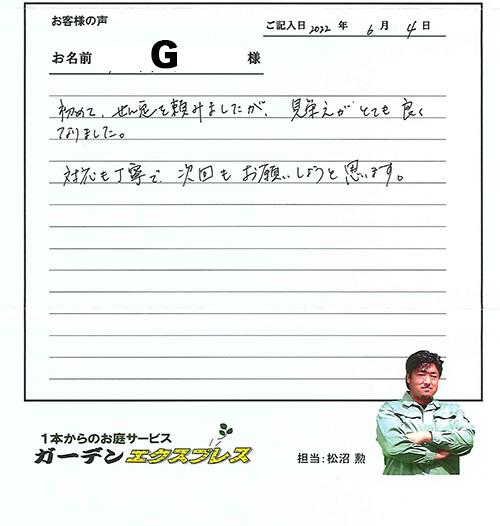 お客様の声
ご記入日 2022 年 6 月 4 日
お名前 G 様
初めて、せん定を頼みましたが、見栄えがとても良く
なりました。
対応も丁寧で、次回もお願いしようと思います。
1本からのお庭サービス
ガーデンエクスプレス
担当:松沼 勲